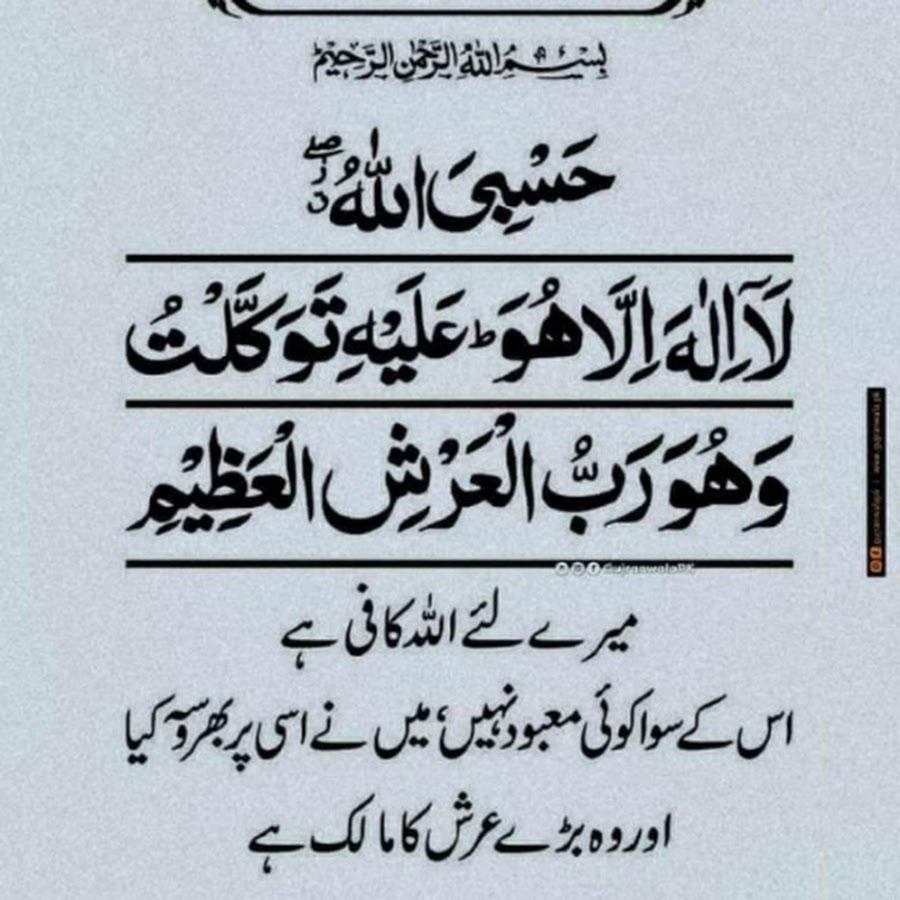 بِسْمِ اللّٰهِ الرَّحْمٰنِ الرَّحِيْمِ
حَسْبِیَ اللّٰهُ
لَآ اِلٰهَ اِلَّا هُوَ ؕ عَلَیْهِ تَوَكَّلْتُ
وَهُوَ رَبُّ الْعَرْشِ الْعَظِیْمِ
GujranwalaPK
میرے لئے اللہ کافی ہے
اس کے سوا کوئی معبود نہیں، میں نے اسی پر بھروسہ کیا
اور وہ بڑے عرش کا مالک ہے